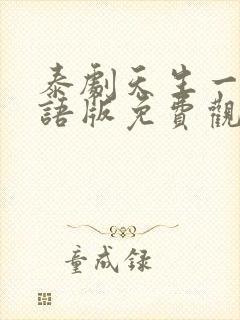 泰劇天生一
語版免費觀
童成録